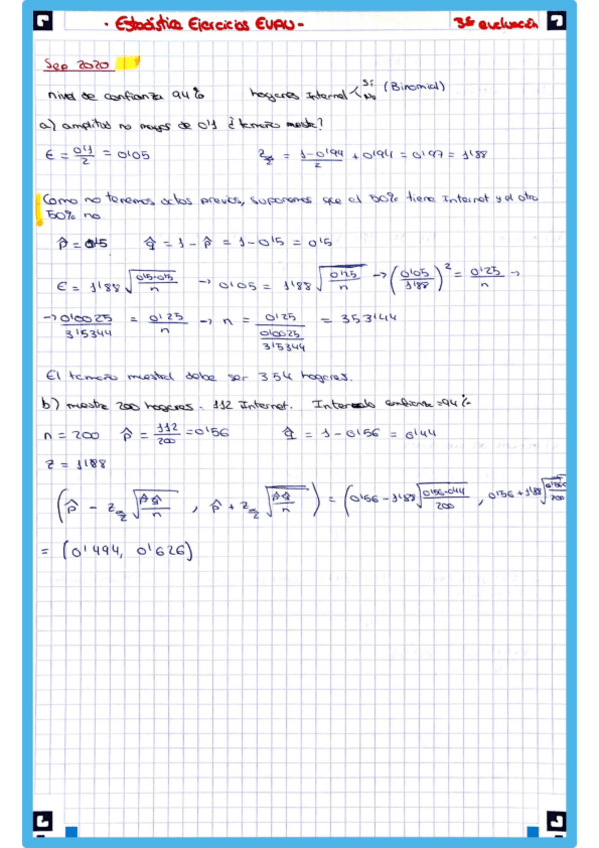 · Estadística Ejercicios EVAU -
3ª evaluación
Sep 2020
nivel de confianza 94% hogares Internet < Sí No (Binomial)
a) amplitud no mayor de 0'1 ¿tamaño muestra?
E = 0'1/2 = 0'05 z_α/2 = 1-0'94/2 + 0'94 = 0'97 = 1'88
Como no tenemos datos previos, suponemos que el 50% tiene Internet y el otro
50% no
p̂ = 0'5 q̂ = 1 - p̂ = 1 - 0'5 = 0'5
E = 1'88 √(0'5·0'5/n) → 0'05 = 1'88 √(0'25/n) → (0'05/1'88)² = 0'25/n →
→ 0'0025/3'5344 = 0'25/n → n = 0'25/(0'0025/3'5344) = 353'44
El tamaño muestral debe ser 354 hogares.
b) muestra 200 hogares. 112 Internet. Intervalo confianza = 94%
n = 200 p̂ = 112/200 = 0'56 q̂ = 1 - 0'56 = 0'44
z = 1'88
(p̂ - z_α/2 √(p̂q̂/n) , p̂ + z_α/2 √(p̂q̂/n)) = (0'56 - 1'88 √(0'56·0'44/200) , 0'56 + 1'88 √(0'56·0/200)
= (0'494, 0'626)